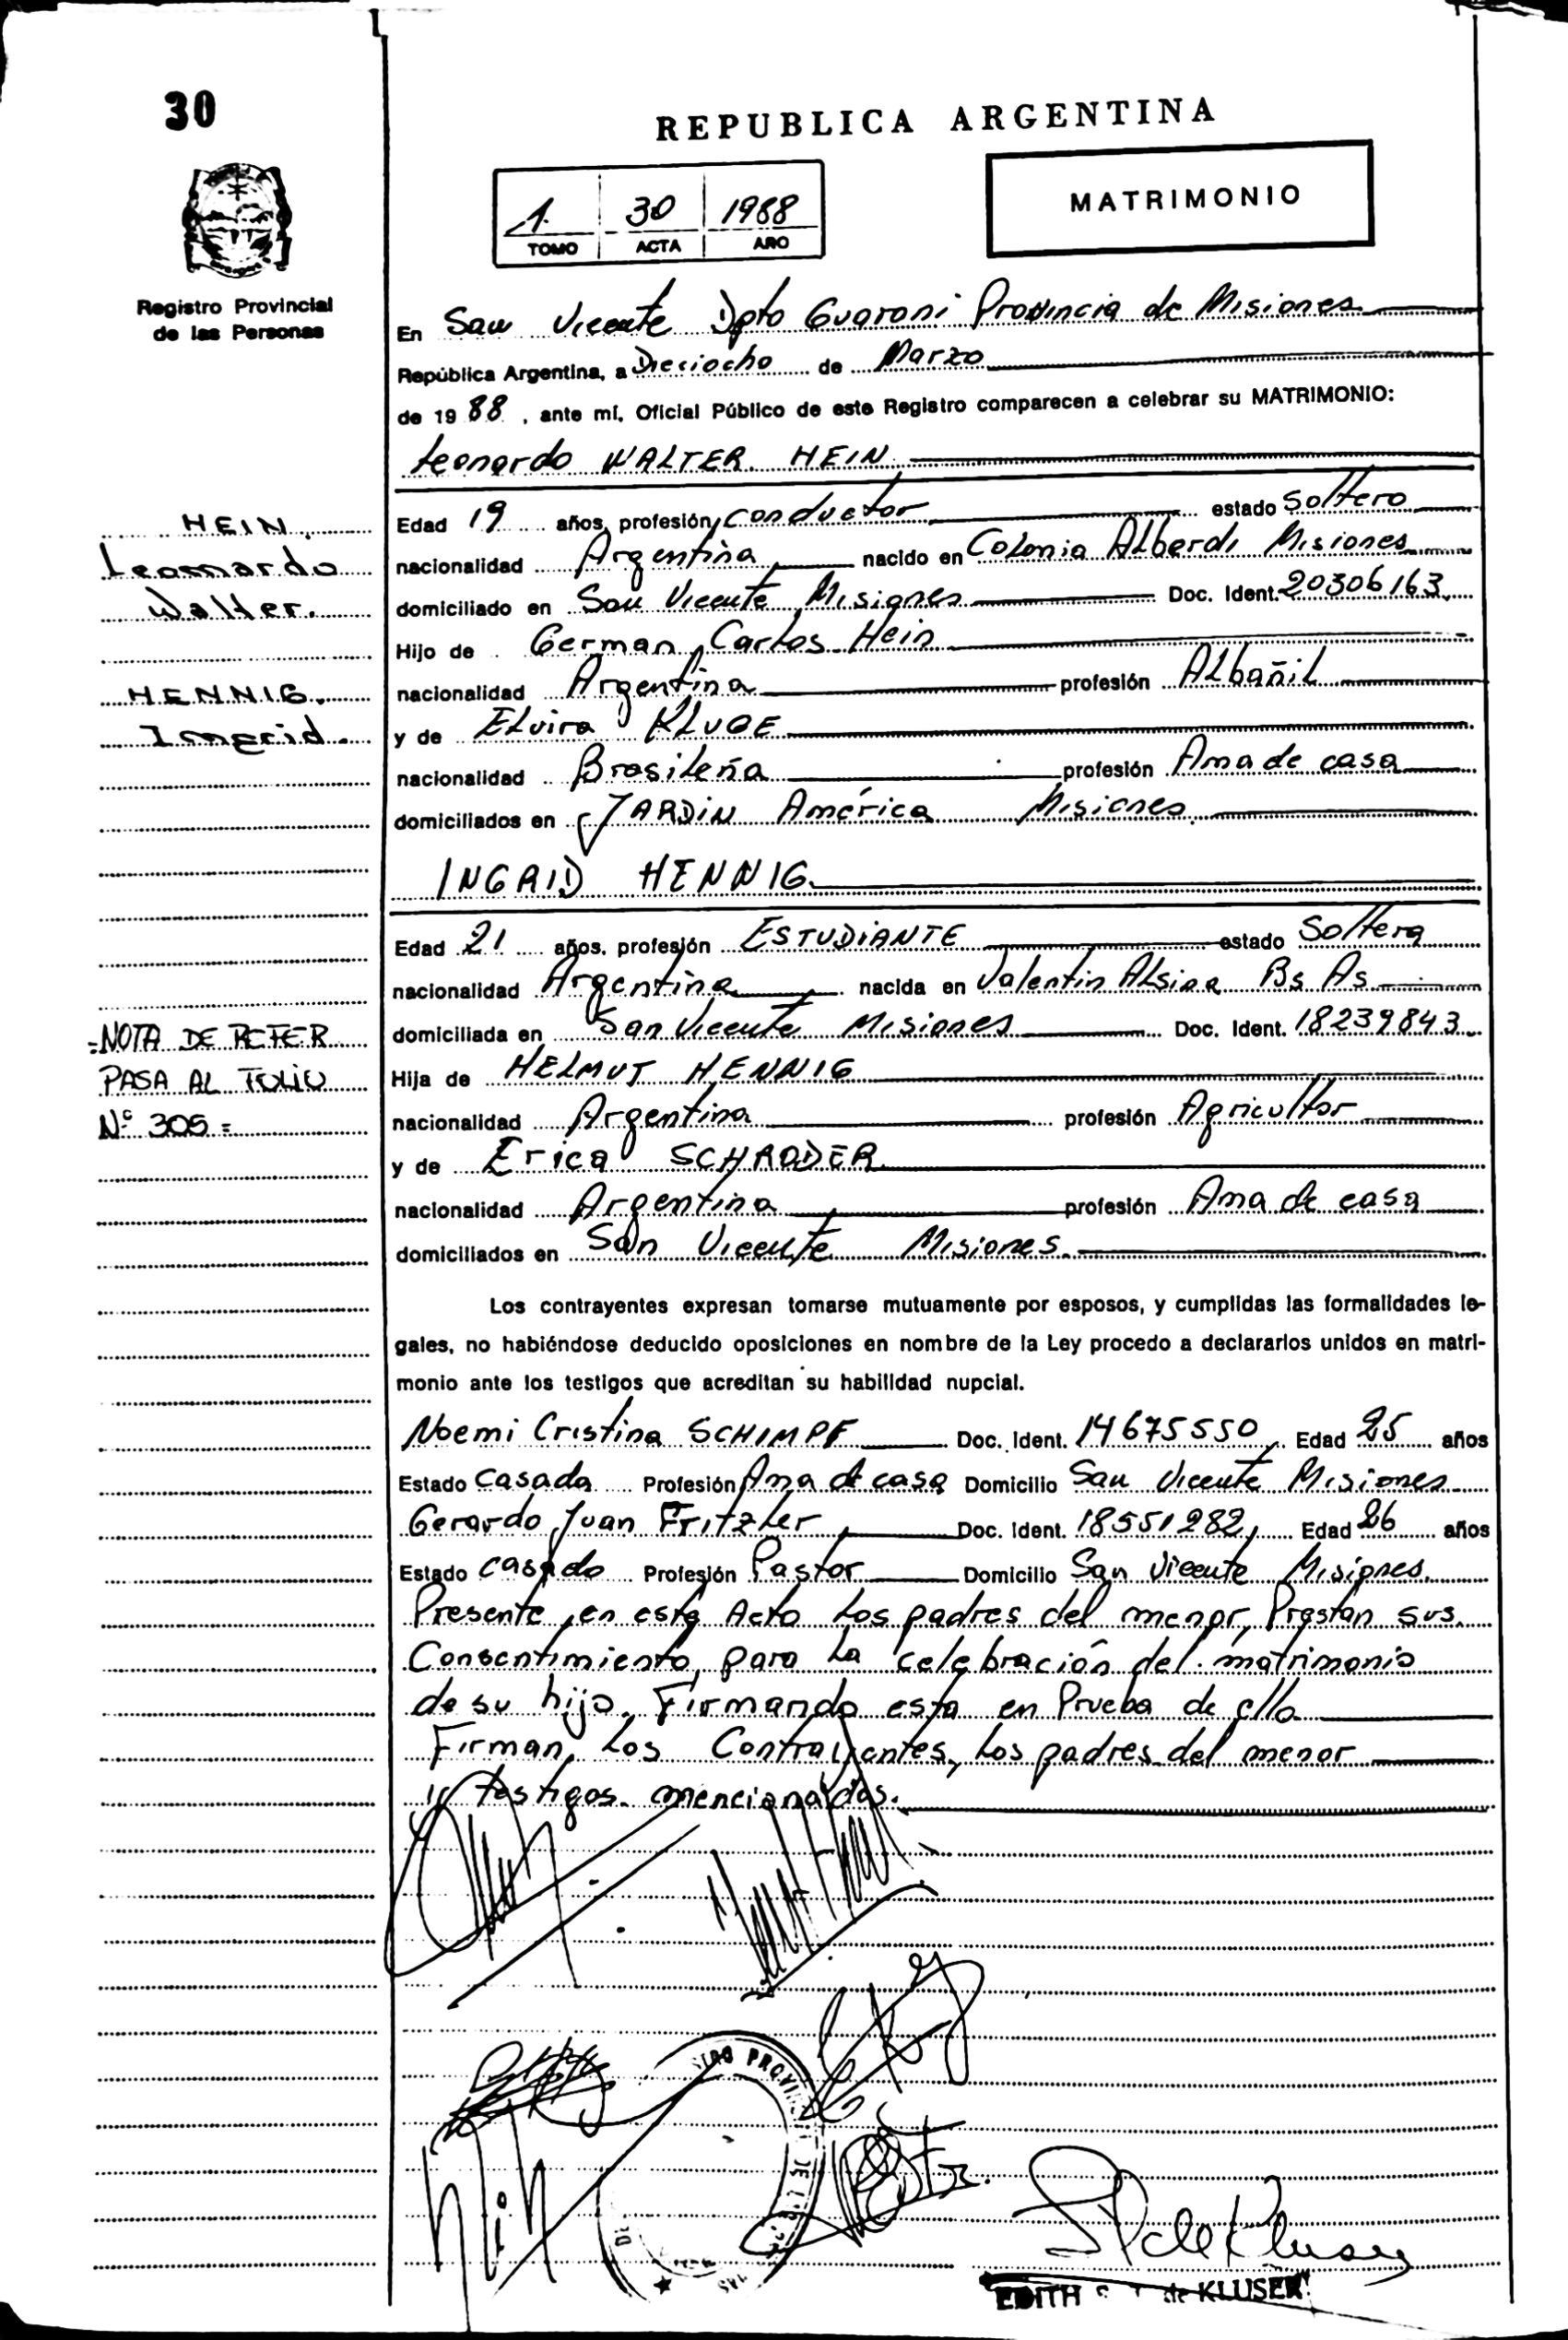 30
REPUBLICA ARGENTINA
1 30 1988
TOMO ACTA AÑO
MATRIMONIO
Registro Provincial
de las Personas
En San Vicente Dpto Guaroni Provincia de Misiones
República Argentina, a Dieciocho de Marzo
de 1988, ante mí, Oficial Público de este Registro comparecen a celebrar su MATRIMONIO:
Leonardo WALTER HEIN
HEIN
Leonardo
Walter.
HENNIG.
Ingrid.
Edad 19 años, profesión conductor estado Soltero
nacionalidad Argentina nacido en Colonia Alberdi Misiones
domiciliado en San Vicente Misiones Doc. Ident. 20306163
Hijo de German Carlos Hein
nacionalidad Argentina profesión Albañil
y de Elvira KLUGE
nacionalidad Brasileña profesión Ama de casa
domiciliados en JARDIN América Misiones
INGRID HENNIG
Edad 21 años, profesión ESTUDIANTE estado Soltera
nacionalidad Argentina nacida en Valentin Alsina Bs As
domiciliada en San Vicente Misiones Doc. Ident. 18239843
Hija de HELMUT HENNIG
nacionalidad Argentina profesión Agricultor
y de Erica SCHRODER
nacionalidad Argentina profesión Ama de casa
domiciliados en San Vicente Misiones
=NOTA DE REFER
PASA AL FOLIO
Nº 305=
Los contrayentes expresan tomarse mutuamente por esposos, y cumplidas las formalidades le-
gales, no habiéndose deducido oposiciones en nombre de la Ley procedo a declararlos unidos en matri-
monio ante los testigos que acreditan su habilidad nupcial.
Noemi Cristina SCHIMPF Doc. Ident. 14675550 Edad 25 años
Estado Casada Profesión Ama de casa Domicilio San Vicente Misiones
Gerardo Juan Fritzler Doc. Ident. 18551282 Edad 26 años
Estado casado Profesión Pastor Domicilio San Vicente Misiones
Presente en este Acto Los padres del menor, Prestan sus
Consentimiento, para La celebración del matrimonio
de su hijo. Firmando esta en Prueba de ello
Firman, Los Contrayentes, Los padres del menor
y testigos mencionados.
EDITH de KLUSER